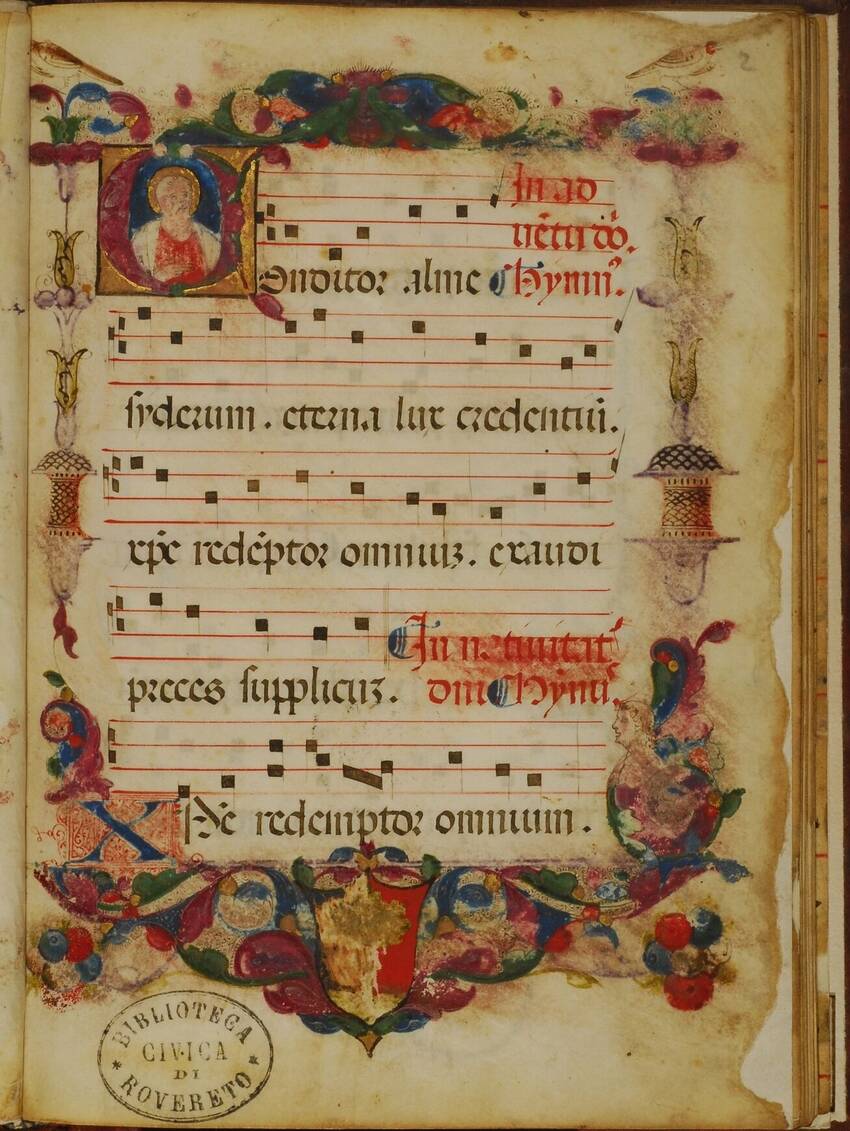 2
In ad
uētu dō.
Conditor alme Hymn⁹.
syderum . eterna lux credentiū.
xp̄e redēptor omniuꝫ . exaudi
preces suppliciꝫ .
In natiuitat
dnī Hymn⁹.
XPē redemptor omnium .
BIBLIOTECA
CIVICA
DI
ROVERETO